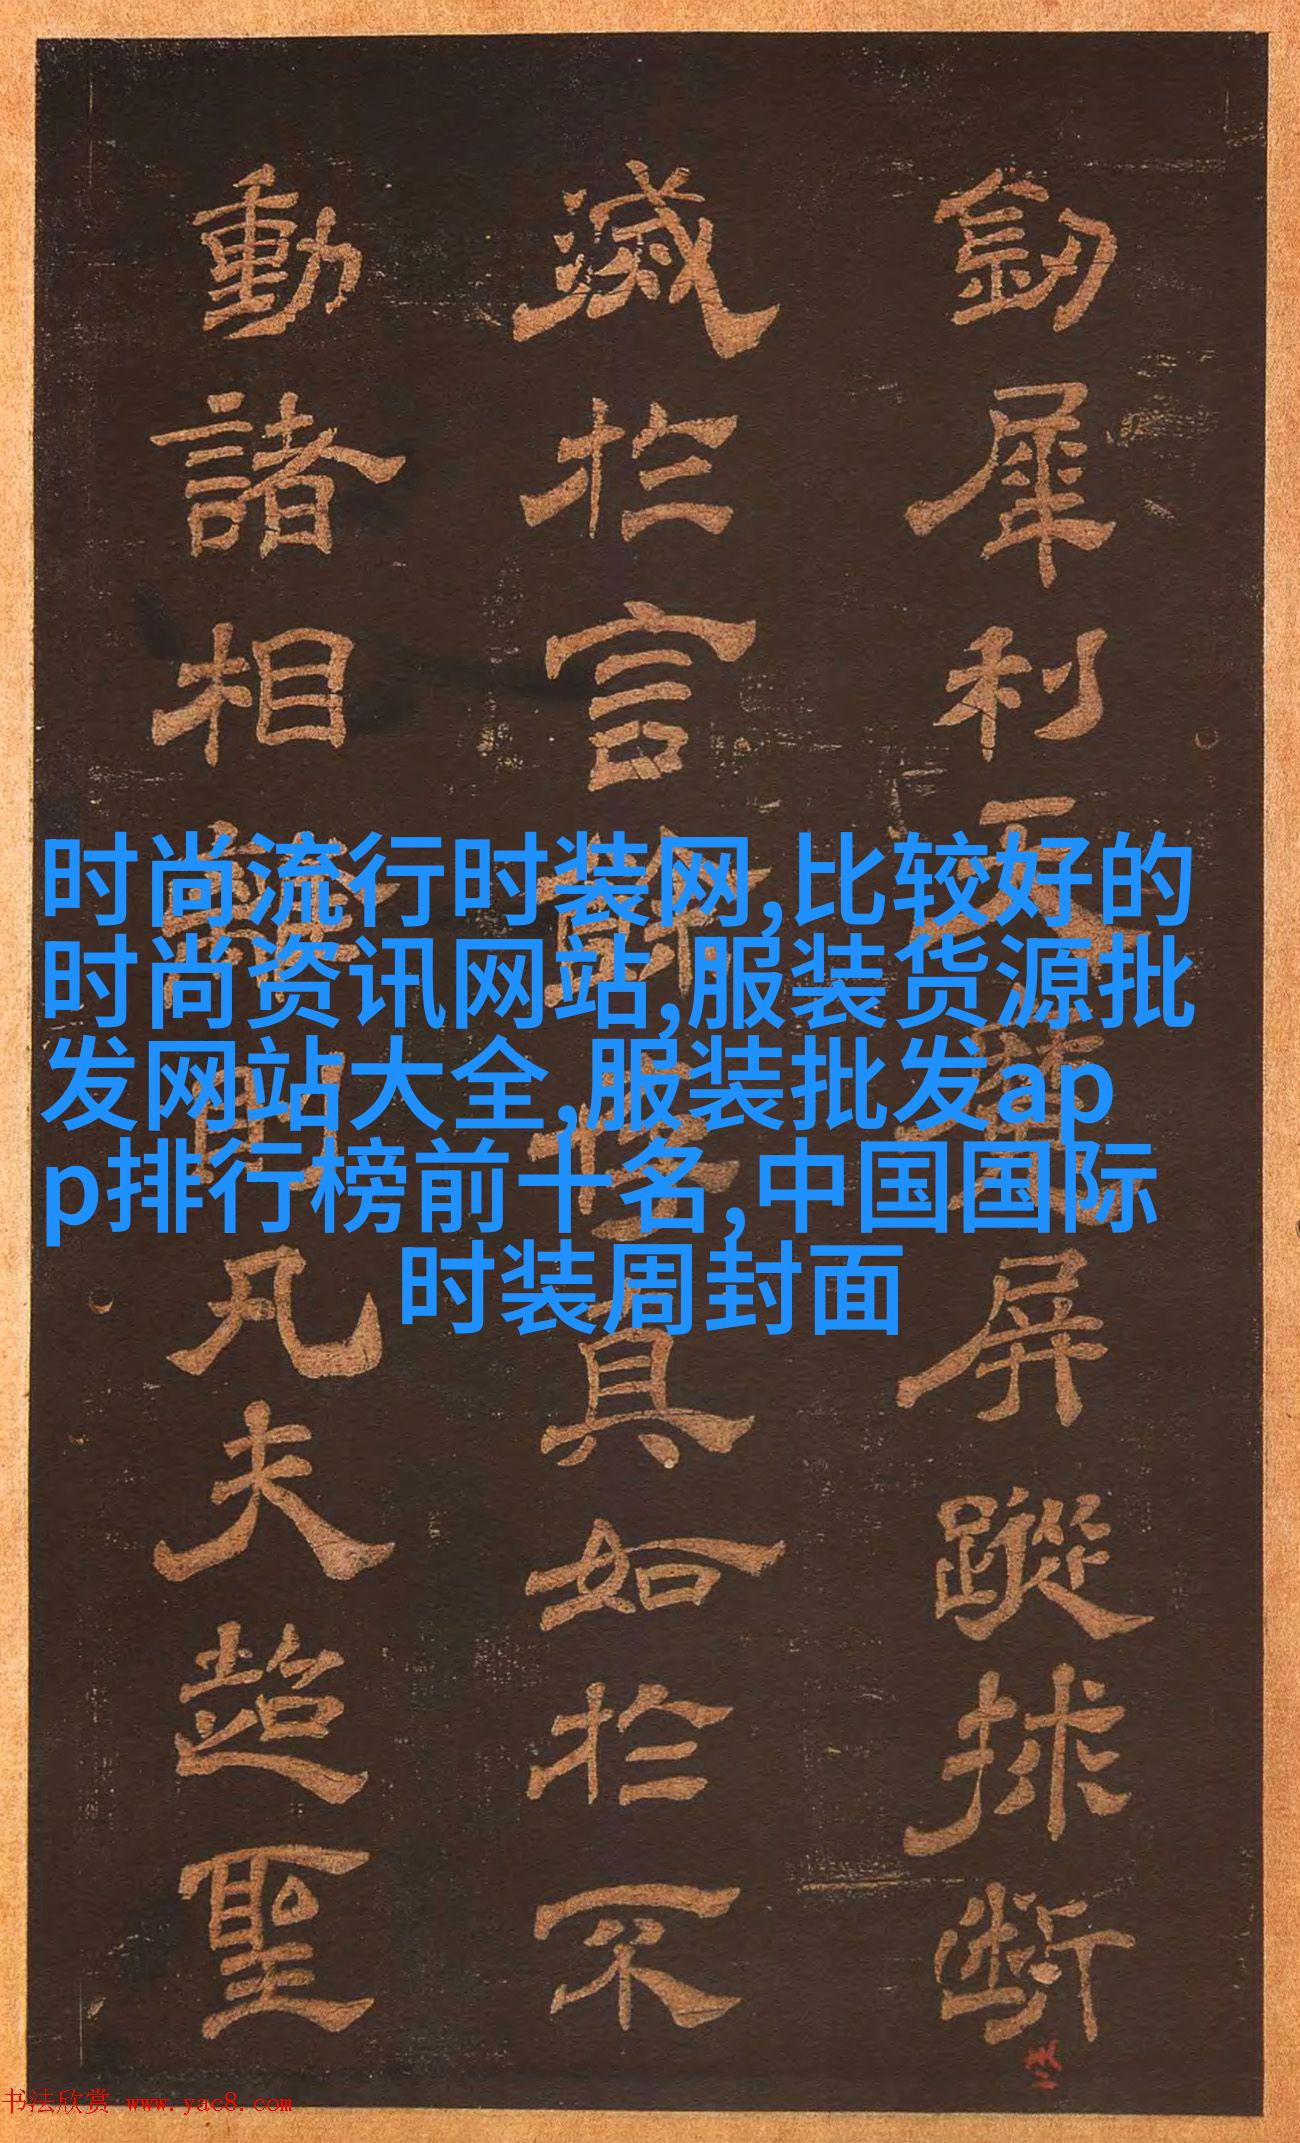 劒犀利天魔屏蹤揀断
滅於言辭性真如於不
動諸相離間凡夫超聖
时尚流行时装网,比较好的
时尚资讯网站,服装货源批
发网站大全,服装批发ap
p排行榜前十名,中国国际
时装周封面
书法欣赏 www.yac8.com